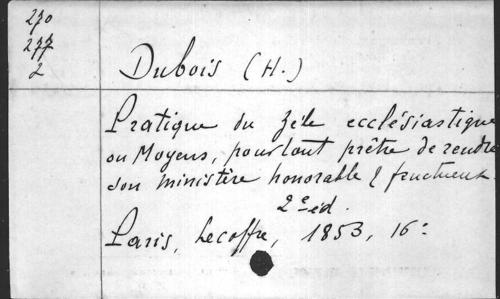 270
277
2
Dubois (H.)
Pratique du Zèle ecclésiastique
ou Moyens, pour tout prêtre de rendre
son ministère honorable & fructueux.
2e éd.
Paris, Lecoffre, 1853, 16º